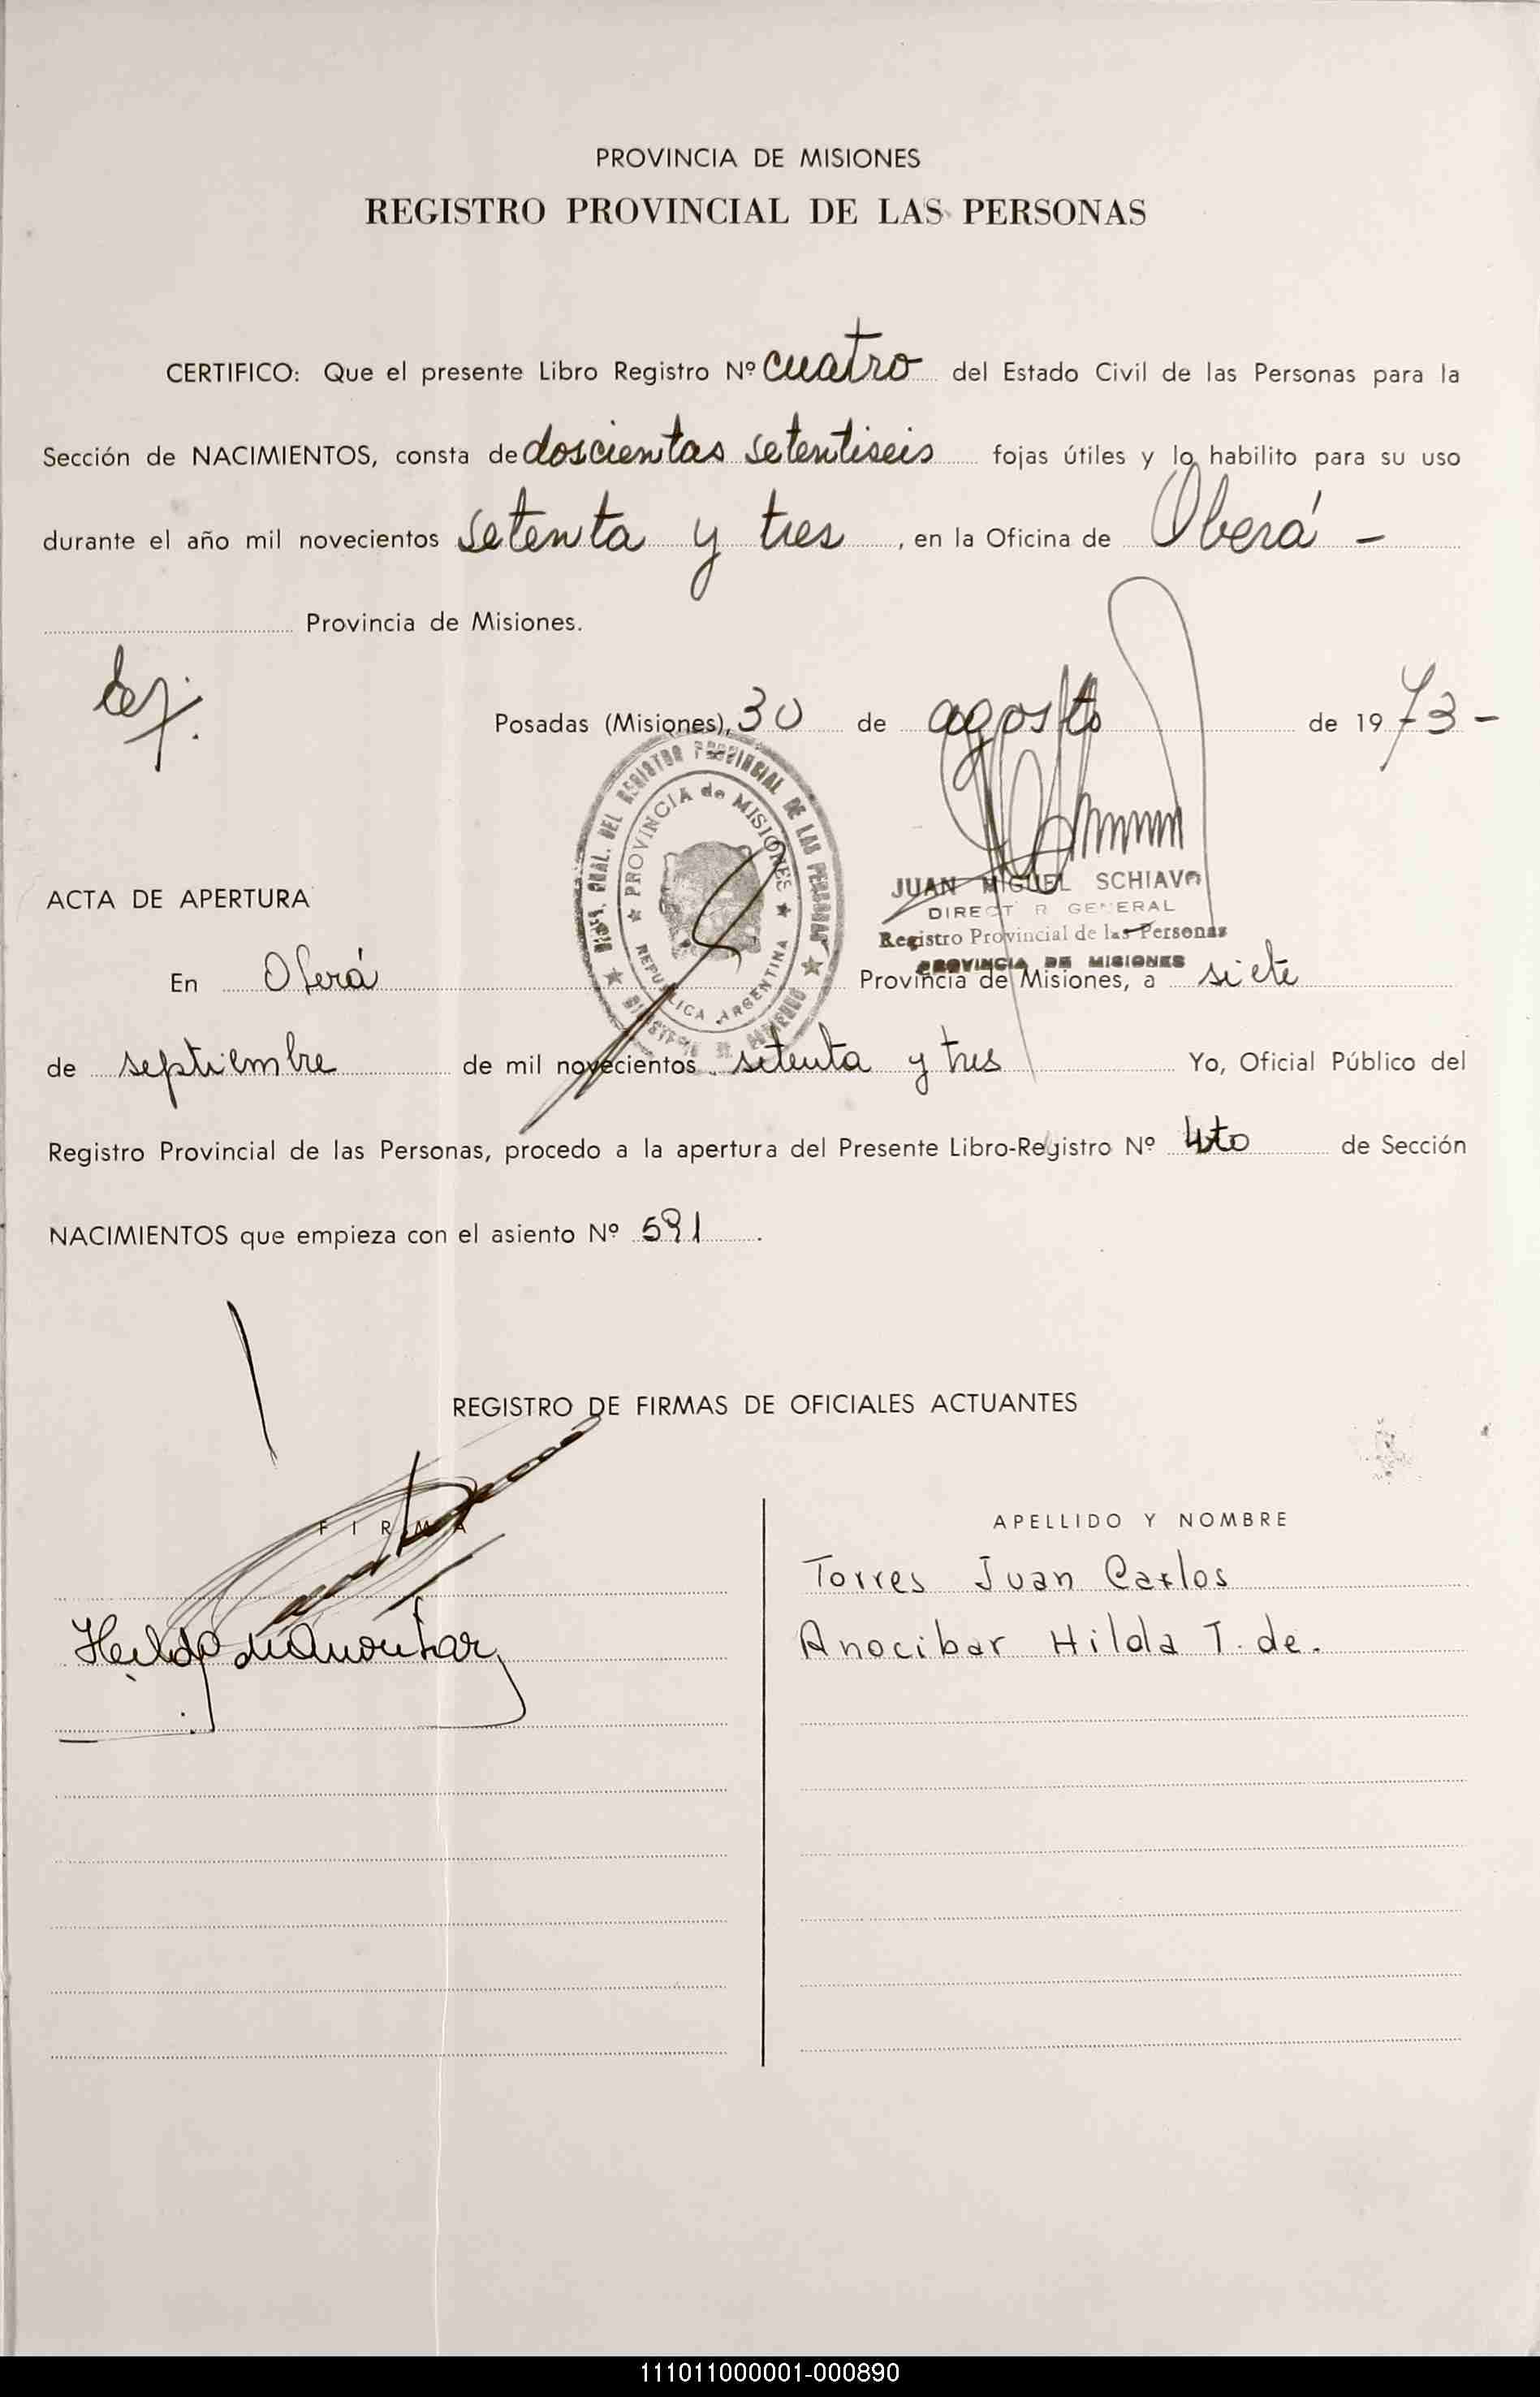 PROVINCIA DE MISIONES
REGISTRO PROVINCIAL DE LAS PERSONAS
CERTIFICO: Que el presente Libro Registro Nº cuatro del Estado Civil de las Personas para la
Sección de NACIMIENTOS, consta de doscientas setentiseis fojas útiles y lo habilito para su uso
durante el año mil novecientos setenta y tres, en la Oficina de Oberá -
Provincia de Misiones.
Posadas (Misiones), 30 de agosto de 1973-
PROVINCIA de MISIONES
REPUBLICA ARGENTINA
JUAN MIGUEL SCHIAVO
DIRECT R GENERAL
Registro Provincial de las Personas
PROVINCIA DE MISIONES
ACTA DE APERTURA
En Oberá Provincia de Misiones, a siete
de septiembre de mil novecientos setenta y tres Yo, Oficial Público del
Registro Provincial de las Personas, procedo a la apertura del Presente Libro-Registro Nº 4to de Sección
NACIMIENTOS que empieza con el asiento Nº 591.
REGISTRO DE FIRMAS DE OFICIALES ACTUANTES
FIRMA
APELLIDO Y NOMBRE
Torres Juan Carlos
Anocibar Hilda T. de.
111011000001-000890